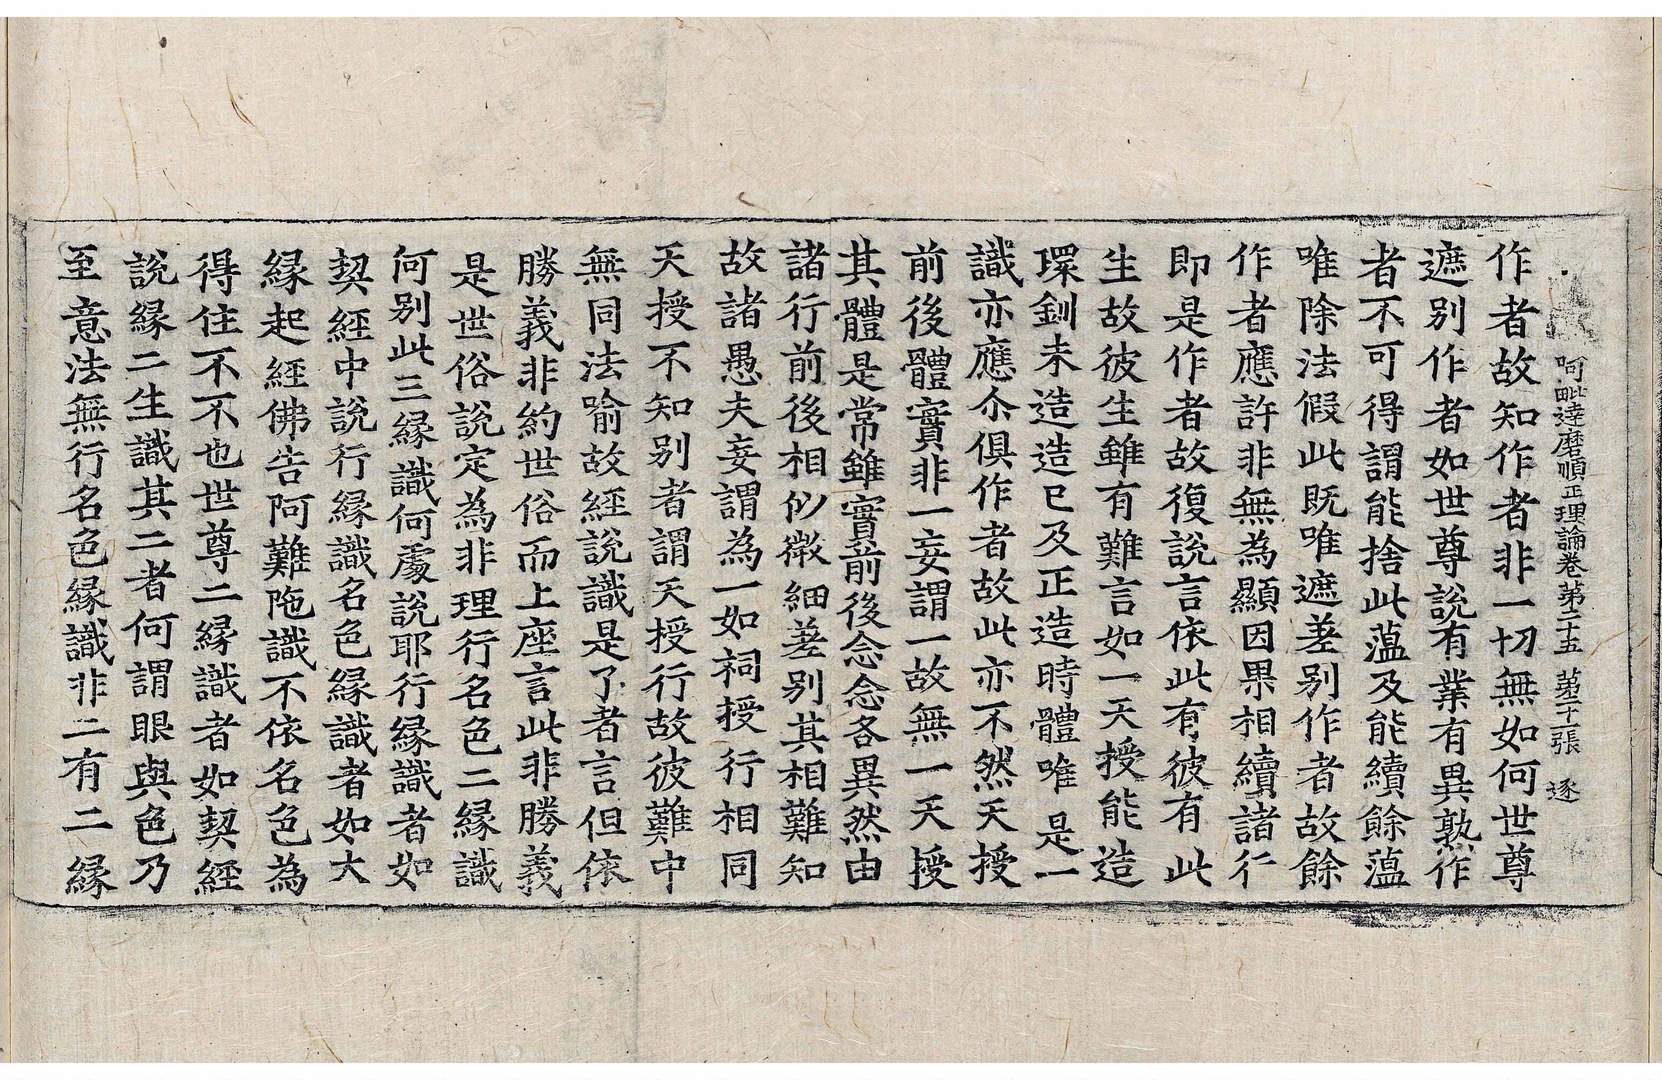 阿毗達磨順正理論卷第二十五 第十二張 逐
作者故知作者非一切無如何世尊
遮別作者如世尊說有業有異熟作
者不可得謂能捨此薀及能續餘薀
唯除法假此既唯遮差別作者故餘
作者應許非無為顯因果相續諸行
即是作者故復說言依此有彼有此
生故彼生雖有難言如一天授能造
環釧未造造已及正造時體唯是一
識亦應尒俱作者故此亦不然天授
前後體實非一妄謂一故無一天授
其體是常雖實前後念念各異然由
諸行前後相似微細差別其相難知
故諸愚夫妄謂為一如祠授行相同
天授不知別者謂天授行故彼難中
無同法喻故經說識是了者言但依
勝義非約世俗而上座言此非勝義
是世俗說定為非理行名色二緣識
何別此三緣識何處說耶行緣識者如
契經中說行緣識名色緣識者如大
緣起經佛告阿難陁識不依名色為
得住不不也世尊二緣識者如契經
說緣二生識其二者何謂眼與色乃
至意法無行名色緣識非二有二緣